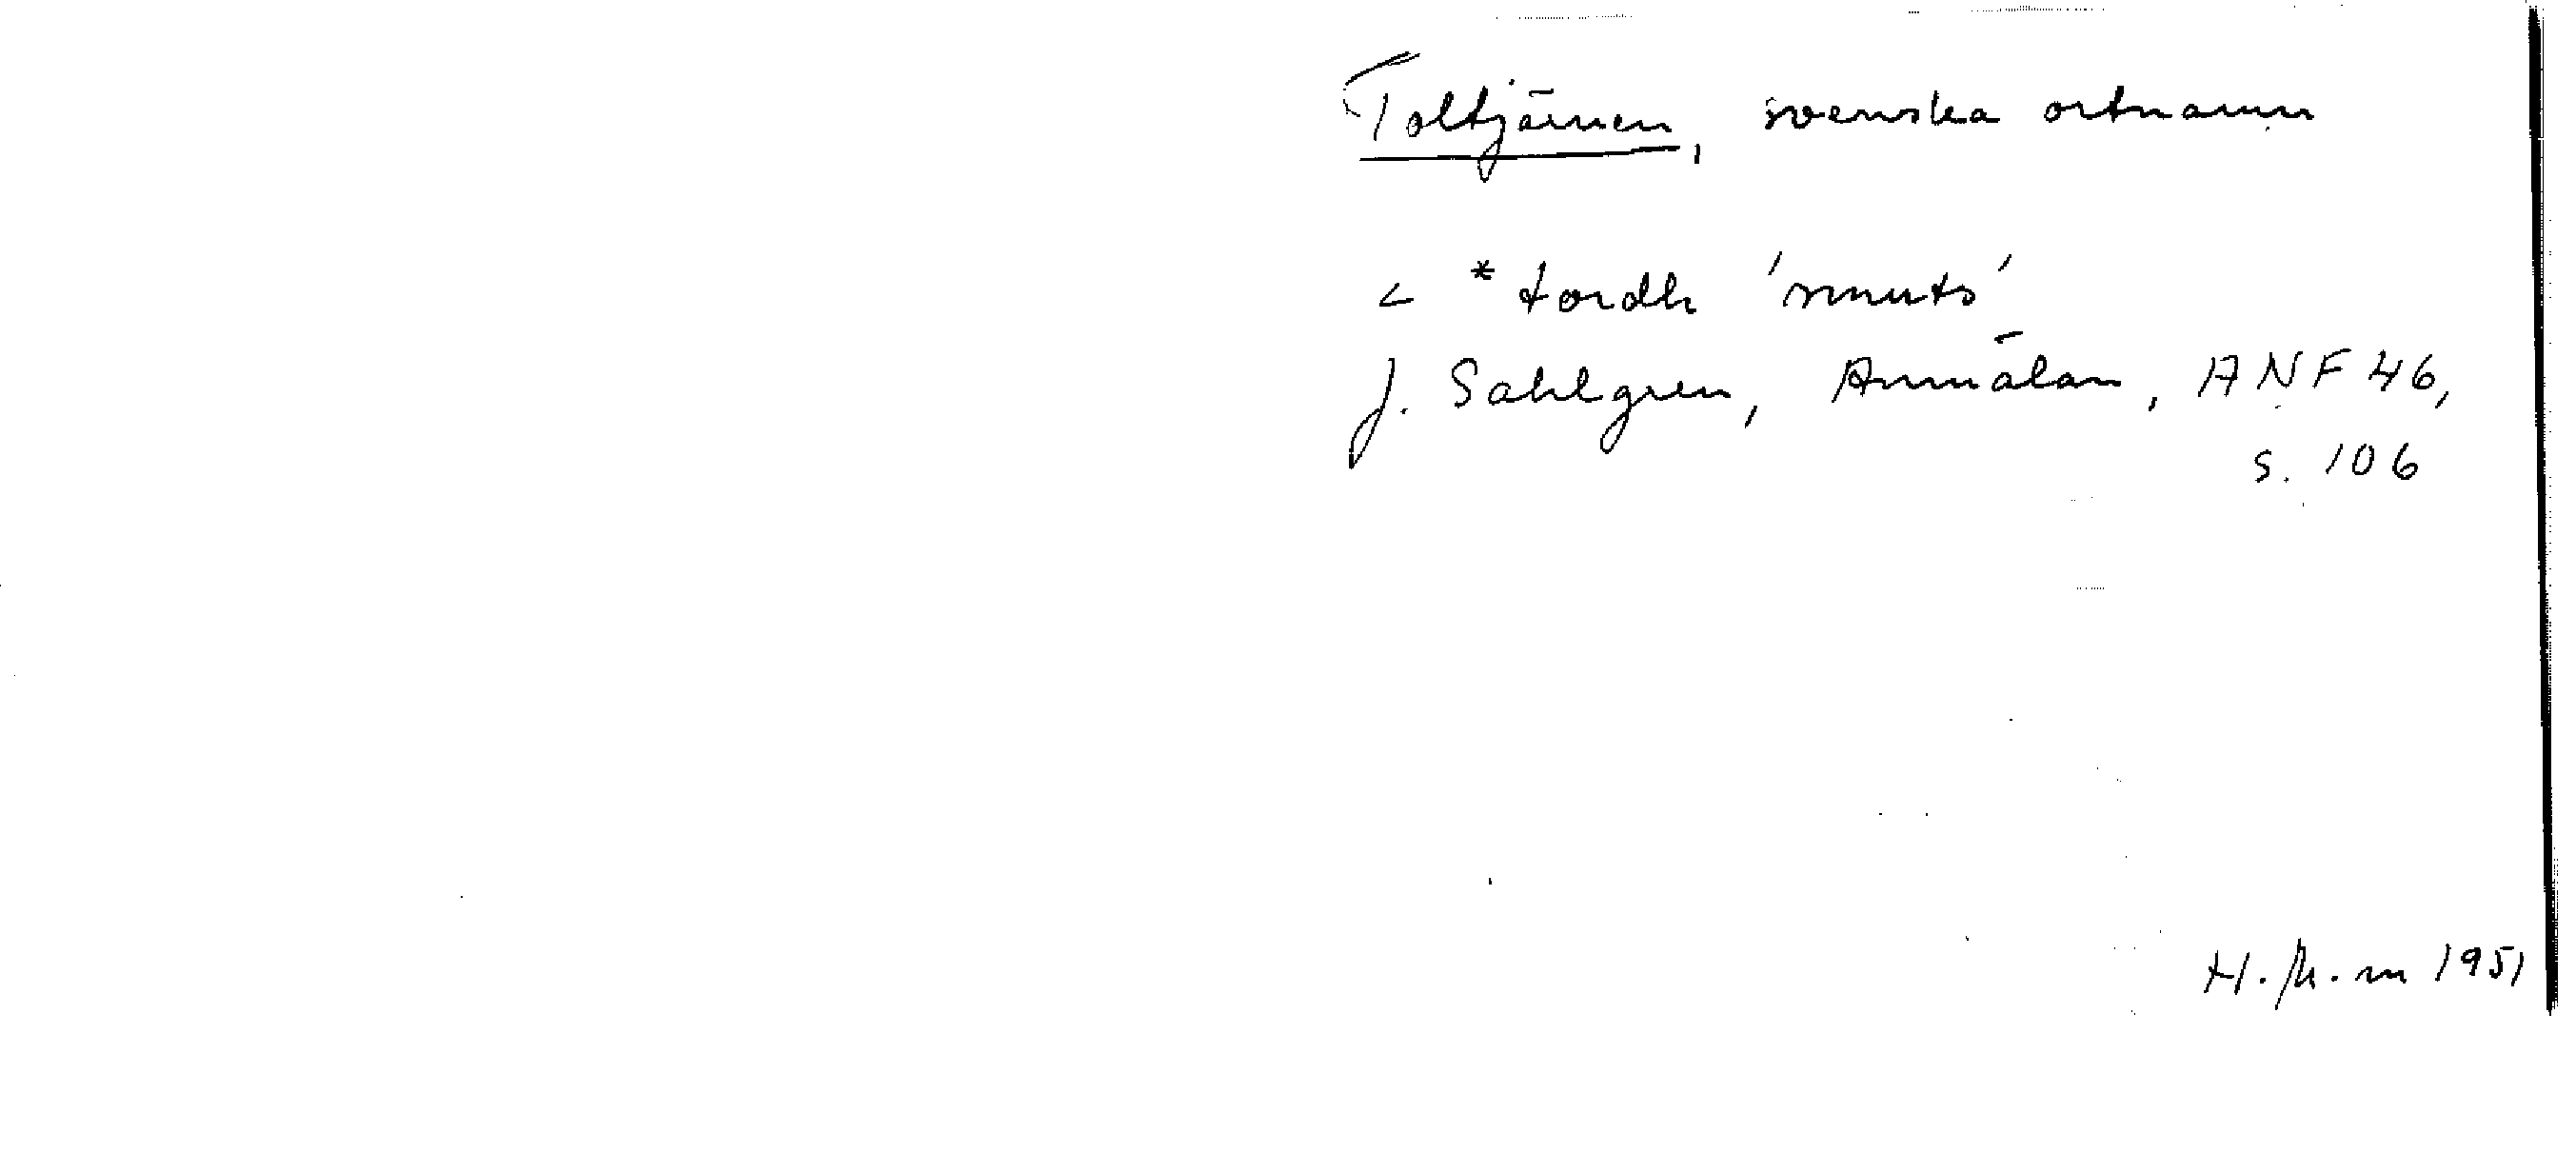 Toltjärnen, svenska ortnamn
< *tordh 'smuts'
J. Sahlgren, Anmälan, ANF 46,
s. 106
H. M. m 1951